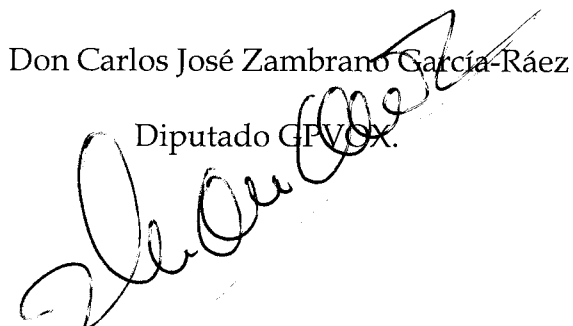 Don Carlos José Zambrano García-Ráez
Diputado GPVOX.